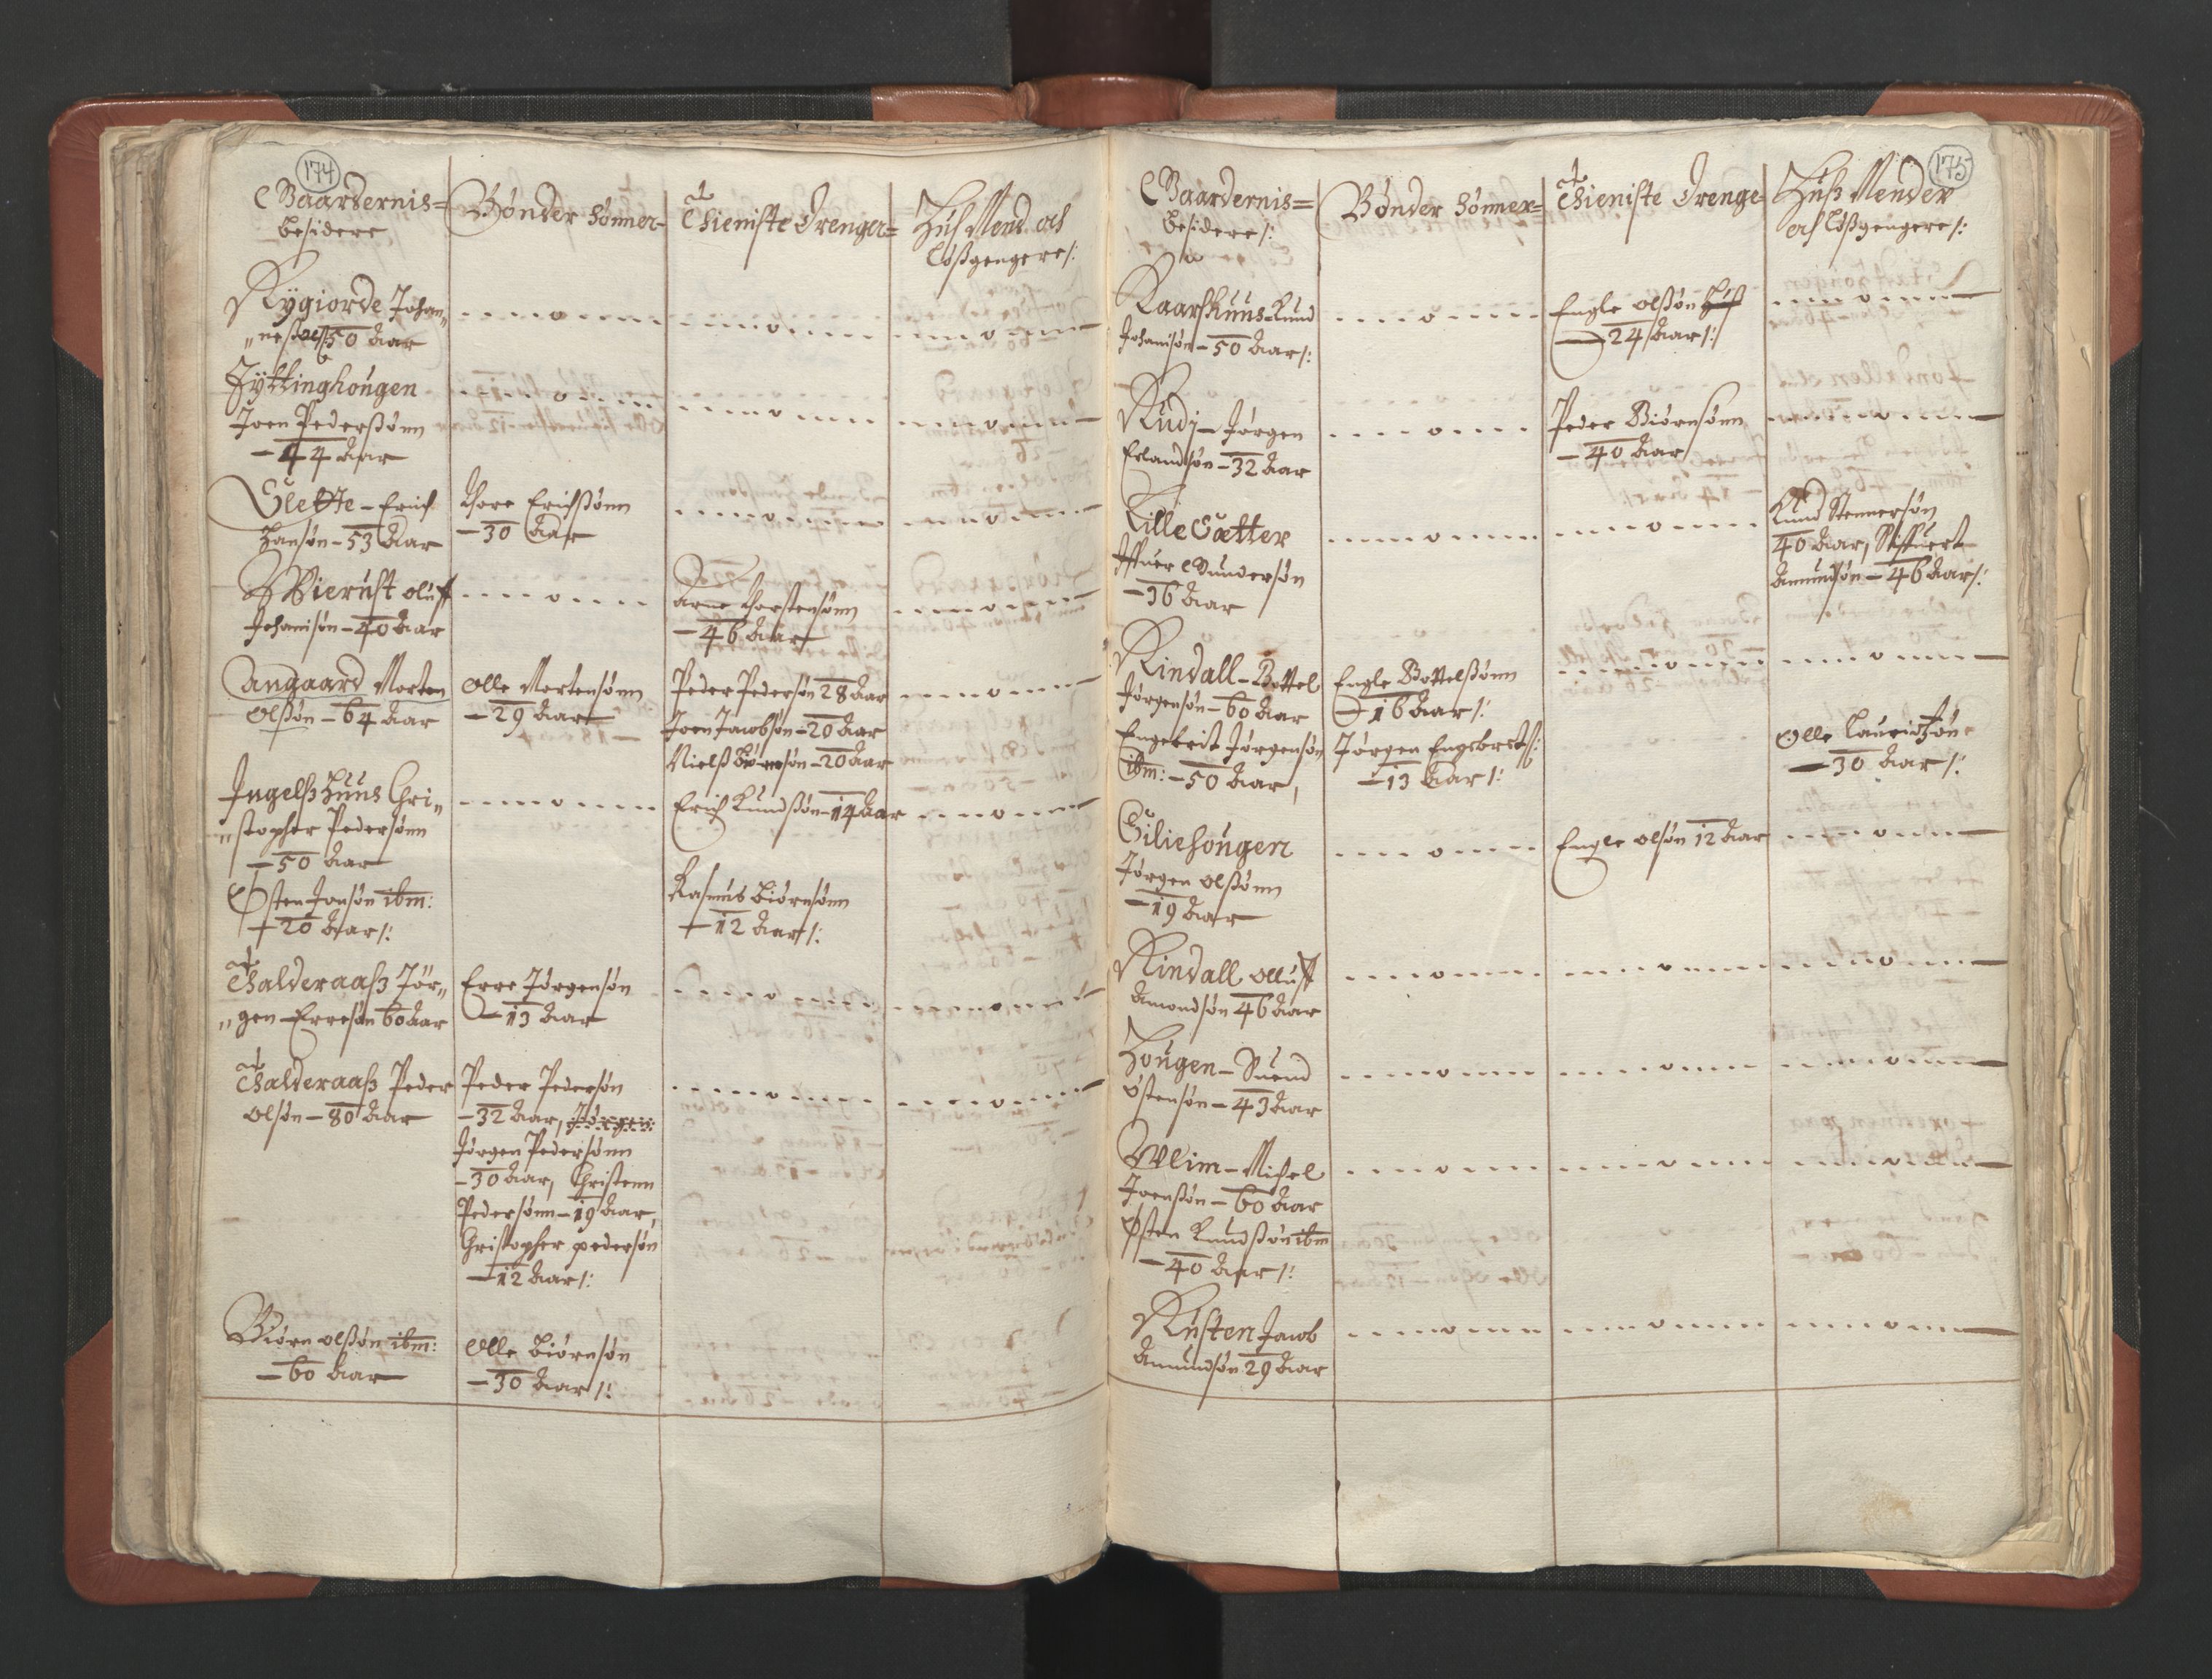 174
Gaardernis=
besidere
Bønder Sønner=
Thieniste Drenger=
Huß Mend och
Løßgengere /:
Rygiorde Johan„
„neß 50 Aar
Jyttinghougen
Joen Pederßønn
– 44 Aar
Slette – Erich
Hansøn – 53 Aar
Thore Erichßønn
– 30 Aar
Bierust oluff
Johanisøn – 40 Aar
Arne Thorstensønn
– 46 Aar
Angaard Morten
Olßøn – 64 Aar
Olle Mortensønn
– 29 Aar
Peder Pedersøn 28 Aar
Joen Jacobsøn – 20 Aar
Nielß Biørnsøn – 20 Aar
Ingelßhuus Chri„
„stopher Pedersønn
– 50 Aar
Erich Knudßøn – 14 Aar
Østen Jonsøn ibm:
– 20 Aar /:
Rasmus Biørnsønn
– 12 Aar /:
Thalderaaß Jør„
„gen Erresøn 60 Aar
Erre Jørgensøn
– 13 Aar
Thalderaaß Peder
Olsøn – 80 Aar
Peder Pedersøn
– 32 Aar, Jørgen
Jørgen Pedersønn
– 30 Aar, Christenn
Pedersønn – 19 Aar,
Christopher pedersøn
– 12 Aar /:
Biørn olßøn ibm:
– 60 Aar
Olle Biørnsøn
– 30 Aar /:
175
Gaardernis=
besidere /:
Bønder Sønner=
Thieniste Drenge=
Huß Mender
och Løßgengere /:
Kaarshuus – Knud
Johanisøn – 50 Aar /:
Engle olßøn
– 24 Aar /:
Rudj – Jørgen
Erlandsøn – 32 Aar
Peder Biørnsønn
– 40 Aar
Lille Sætter
Iffuer Gundersøn
– 36 Aar
Knud Stennersøn
40 Aar, Siffuert
Amundsøn – 46 Aar /:
Rindall – Bottel
Jørgensøn – 60 Aar
Engle Bottelßønn
– 16 Aar /:
Engebret Jørgensøn
ibm: – 50 Aar,
Jørgen Engebretß:
– 13 Aar /:
Olle Lauridzøn
– 30 Aar /:
Giliehougen
Jørgen olßønn
– 19 Aar
Engle olsøn 12 Aar
Rindall olluff
Amondsøn 46 Aar
Hougen – Suend
Østensøn – 43 Aar
Wlim – Michel
Joenßøn – 60 Aar
Østen Knudßøn ibm
– 40 Aar /:
Rusten Jacob
Amundsøn 29 Aar